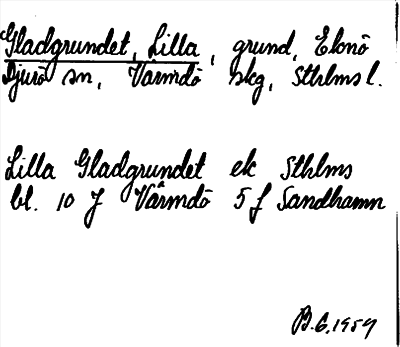 Gladgrundet, Lilla, grund, Eknö
Djurö sn, Värmdö skg, Sthlms l.
Lilla Gladgrundet ek Sthlms
bl. 10 J Värmdö 5 f Sandhamn
B.G. 1959